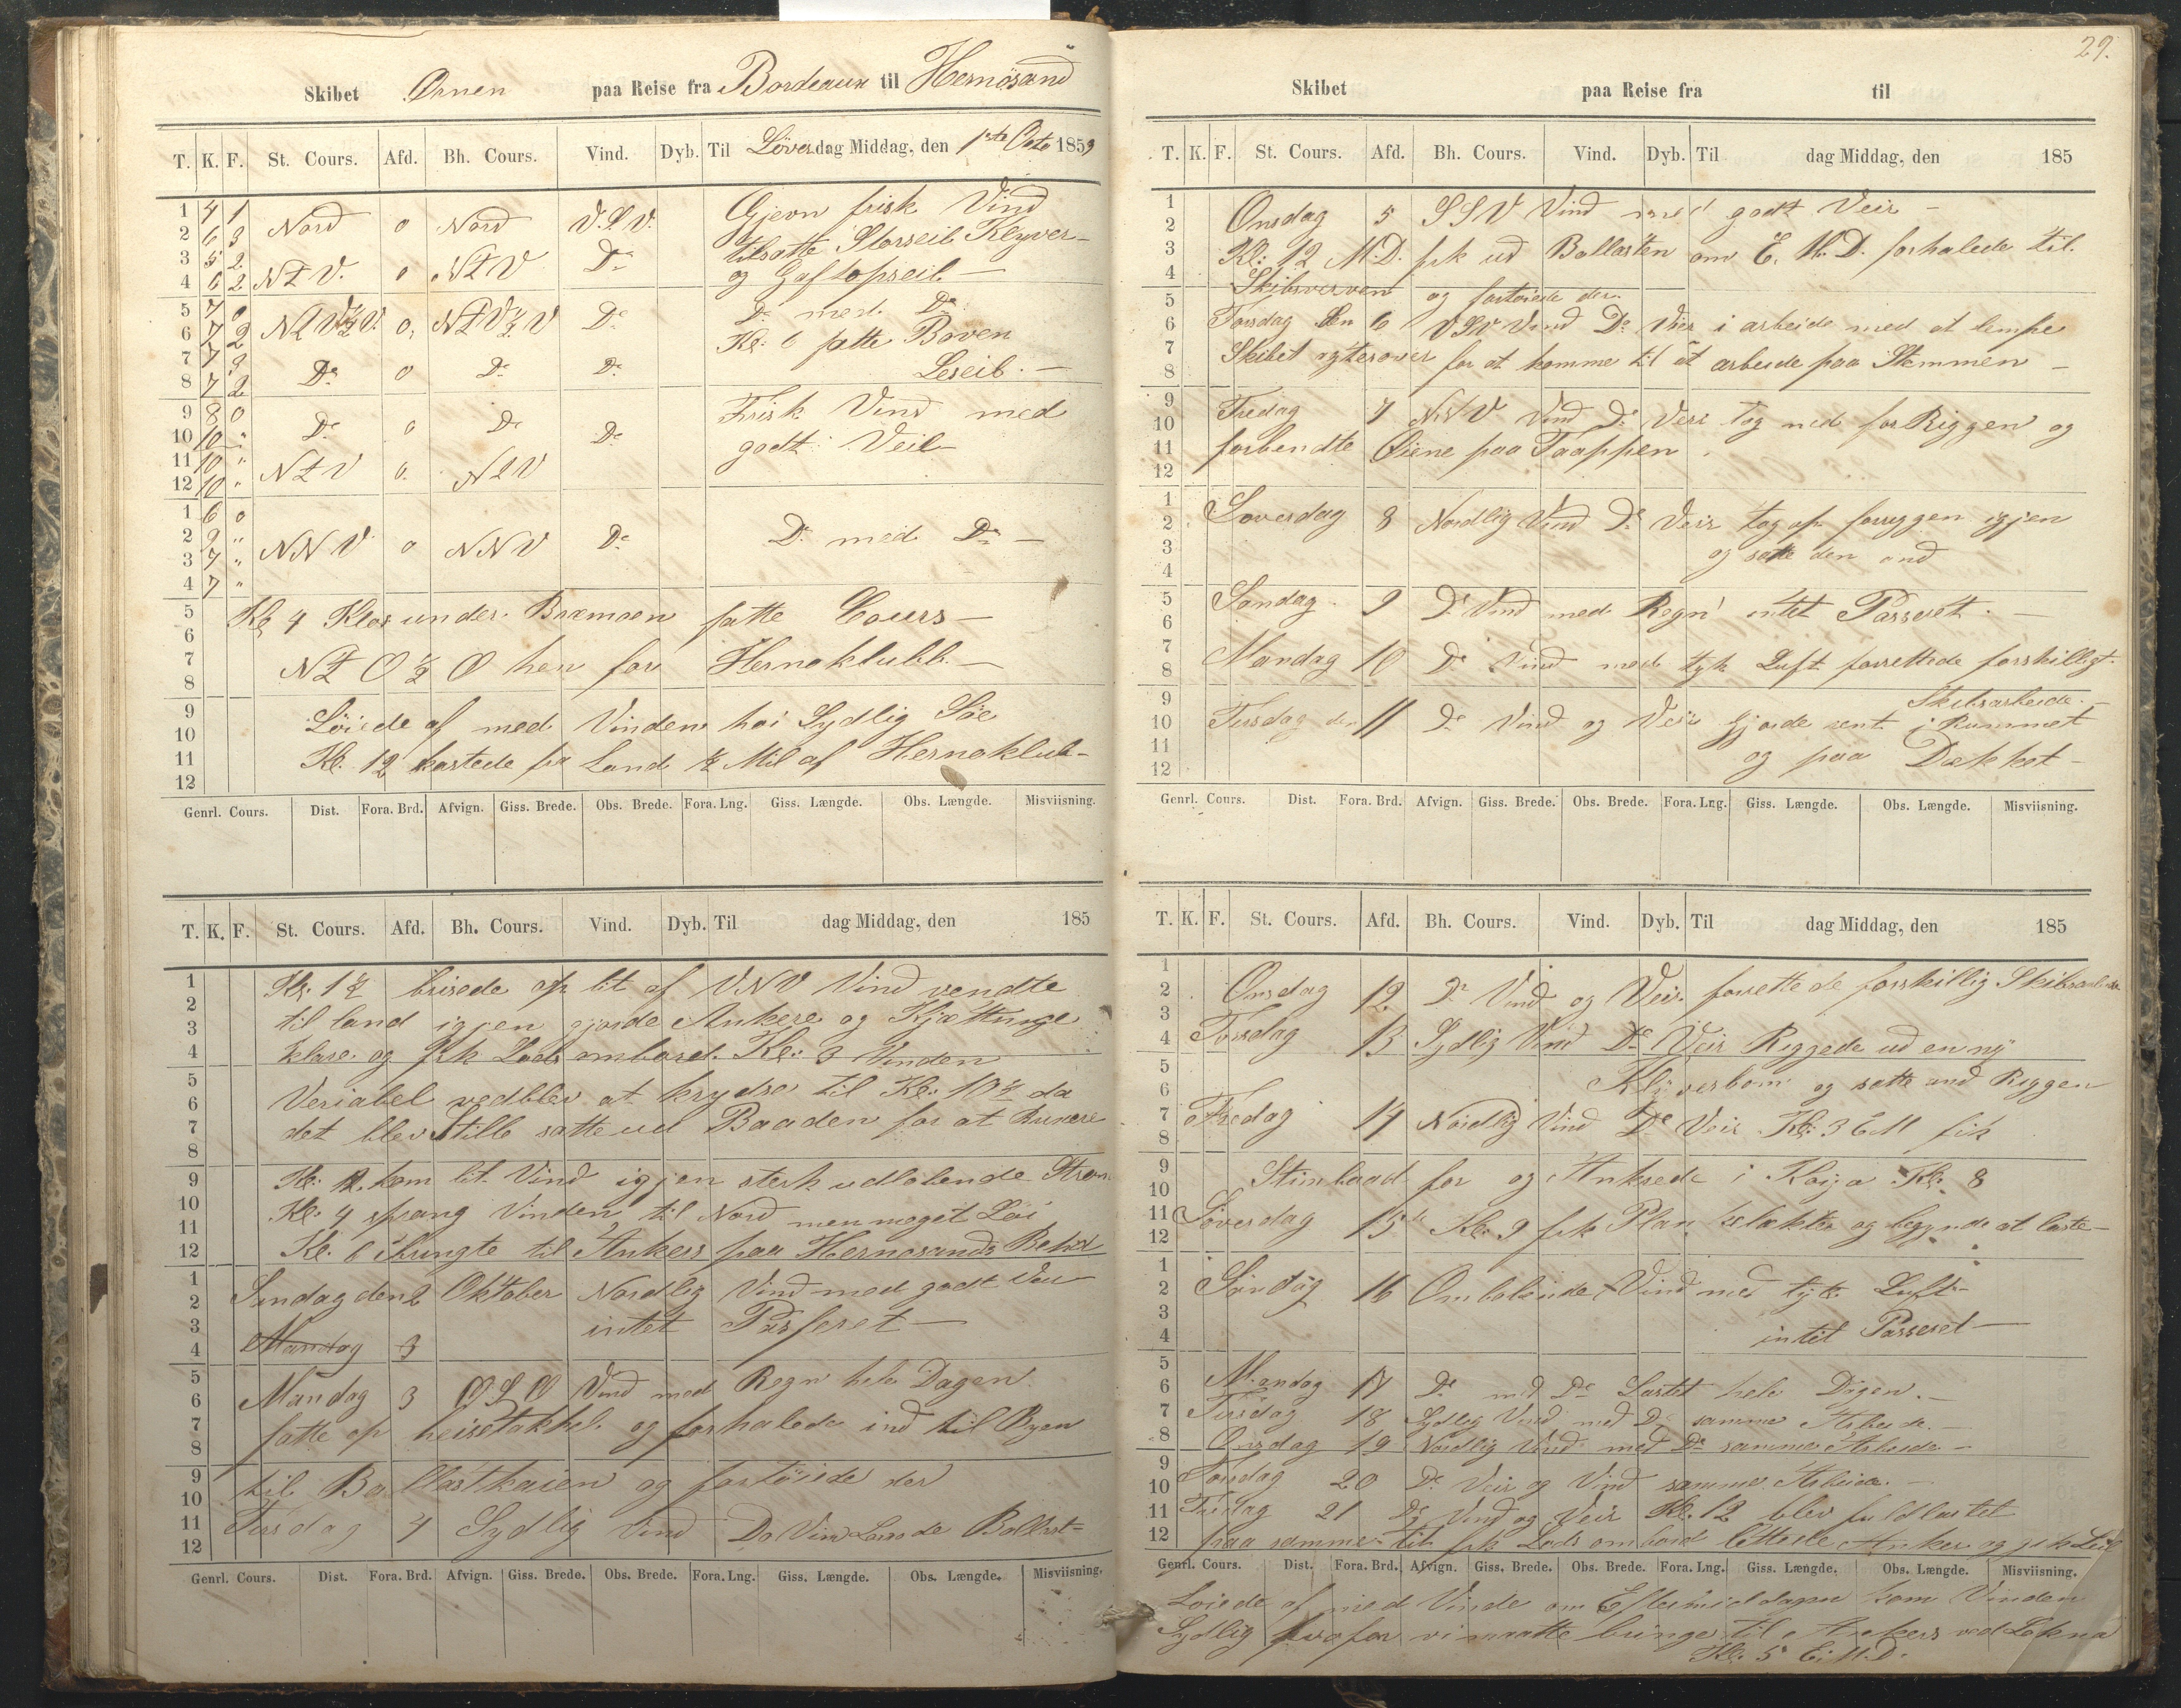 Skibet Ørnen paa Reise fra Bordeaux til Hernösand
T. K. F. St. Cours. Afd. Bh. Cours. Vind. Dyb. Til Löverdag Middag, den 1ste Octo 1859
1 4 1 Nord o Nord V.S.V. Gjevn frisk Vind
2 6 3 tilsatte Storseil Klyver-
3 5 2 NtV. o NtV Do og Gaftopseil —
4 6 2
5 7 0 NtV½V. o NtV½V Do Do med Do
6 7 2 Kl: 6 satte Boven
7 7 3 Do o Do Do Leseil. —
8 7 2
9 8 0 Do o Do Do Frisk Vind med
10 10 " godt Veir
11 10 " NtV o. NtV
12 10 "
1 6 0
2 9 " NNV o NNV Do Do med Do —
3 7 "
4 7 "
5 Kl 4 Klos under Bræmoen satte Cours —
6
7 NtO½O hen for Hernoklubb. —
8
9 Löiede af med Vinden hoi Sydlig Söe
10
11 Kl. 12 kastede fra Land ½ Mil af Hernoklub-
12
Genrl. Cours. Dist. Fora. Brd. Afvign. Giss. Brede. Obs. Brede. Fora. Lng. Giss. Længde. Obs. Længde. Misviisning.
T. K. F. St. Cours. Afd. Bh. Cours. Vind. Dyb. Til dag Middag, den 185
1 Kl: 1½ brisede op lit af VNV Vind vendte
2
3 til land igjen gjorde Ankere og Kjættinge
4 klare og fik Lods ombord. Kl: 3 Vinden
5
6 Veriabel vedblev at krydse til Kl: 10½ da
7 det blev Stille satte ud Baaden for at Buxere
8
9 Kl: 12 kom lit Vind igjen sterk udlobende Strøm
10 Kl: 4 sprang Vinden til Nord men meget Löi
11
12 Kl: 6 til Ankers paa Hernosands Rehd
1 Sundag den 2 Oktober Nordlig Vind med godt Veir
2
3 intet Passeret —
4 Mandag 3
5
6 Mandag 3 O.S.O Vind med Regn hele Dagen
7 satte op heisetakkel og forhalede ind til Byen
8
9 til Ballastkaien og fortöiede der
10
11 Tirsdag 4 Sydlig Vind Do Vind Lossede Ballast-
12
Genrl. Cours. Dist. Fora. Brd. Afvign. Giss. Brede. Obs. Brede. Fora. Lng. Giss. Længde. Obs. Længde. Misviisning.
29.
Skibet paa Reise fra til
T. K. F. St. Cours. Afd. Bh. Cours. Vind. Dyb. Til dag Middag, den 185
1 Onsdag 5 SSV Vind med godt Veir —
2
3 Kl: 12 M.D. fik ud Ballasten om E. M.D. forhalede til
4 Skibsverven og fortöiede der.
5
6 Torsdag den 6 VSV Vind Do Veir i arbeide med at lempe
7 Skibet agterover for at komme til at arbeide paa Stemmen —
8
9 Fredag 7 NNV Vind Do Veir tog ned forRiggen og
10
11 forbendte Öiene paa Taappen.
12
1 Loverdag 8 Nordlig Vind Do Veir tog op forryggen igjen
2
3 og satte den and
4
5 Sondag 9 Do Vind med Regn intet Passeret. —
6
7 Mandag 10 Do Vind med tyk Luft forrettede forskilligt
8
9 Skibsarbeide. —
10 Tirsdag den 11 Do Vind og Veir gjorde rent i Rummet
11 og paa Dækket —
12
Genrl. Cours. Dist. Fora. Brd. Afvign. Giss. Brede. Obs. Brede. Fora. Lng. Giss. Længde. Obs. Længde. Misviisning.
T. K. F. St. Cours. Afd. Bh. Cours. Vind. Dyb. Til dag Middag, den 185
1
2 Onsdag 12. Do Vind og Veir forrettede forskillig
3
4 Torsdag 13 Sydlig Vind Do Veir Riggede ud en ny
5
6 Klyverbom og satte and Riggen
7 Fredag 14 Nordlig Vind Do Veir Kl: 3 EM fik
8
9 Stimbaad for og Ankrede i Kl: 8
10
11 Löverdag 15 Kl: 9 fik og begynde at laste —
12
1
2 Söndag 16 Omlobende Vind med tyk Luft —
3
4 intet Passeret —
5
6 Mandag 17 Do med Do Lastet hele Dagen. —
7 Tirsdag 18 Sydlig Vind med Do samme Arbeide. —
8 Onsdag 19 Nordlig Vind med Do samme Arbeide —
9
10 Torsdag 20 Do Veir og Vind samme Arbeide. —
11 Fredag 21 Do Vind og Veir Kl. 12 blev fuldlastet
12 paa samme tid fik Lods ombord lettede Anker og gik
Genrl. Cours. Dist. Fora. Brd. Afvign. Giss. Brede. Obs. Brede. Fora. Lng. Giss. Længde. Obs. Længde. Misviisning.
Loiede af med Vinde om Eftermiddagen kom Vinden
Sydlig vi maatte bringe til Ankers ved
Kl: 5 E.M.D.